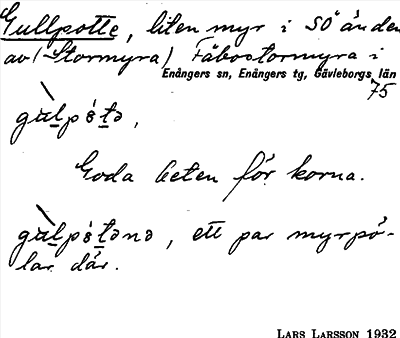 Gullpotte, liten myr i SÖ änden
av (Stormyra) Fäbostormyra i
Enångers sn, Enångers tg, Gävleborgs län
75
gu̇lpòtə,
Goda beten för korna.
gu̇lpòtənə, ett par myrpö-
lar där.
LARS LARSSON 1932